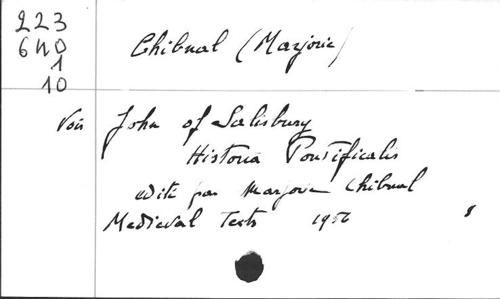 223
640
1
10
Chibnal (Marjorie)
Voir John of Salisbury
Historia Pontificalis
edité par Marjorie Chibnal
Medieval Texts 1956 8